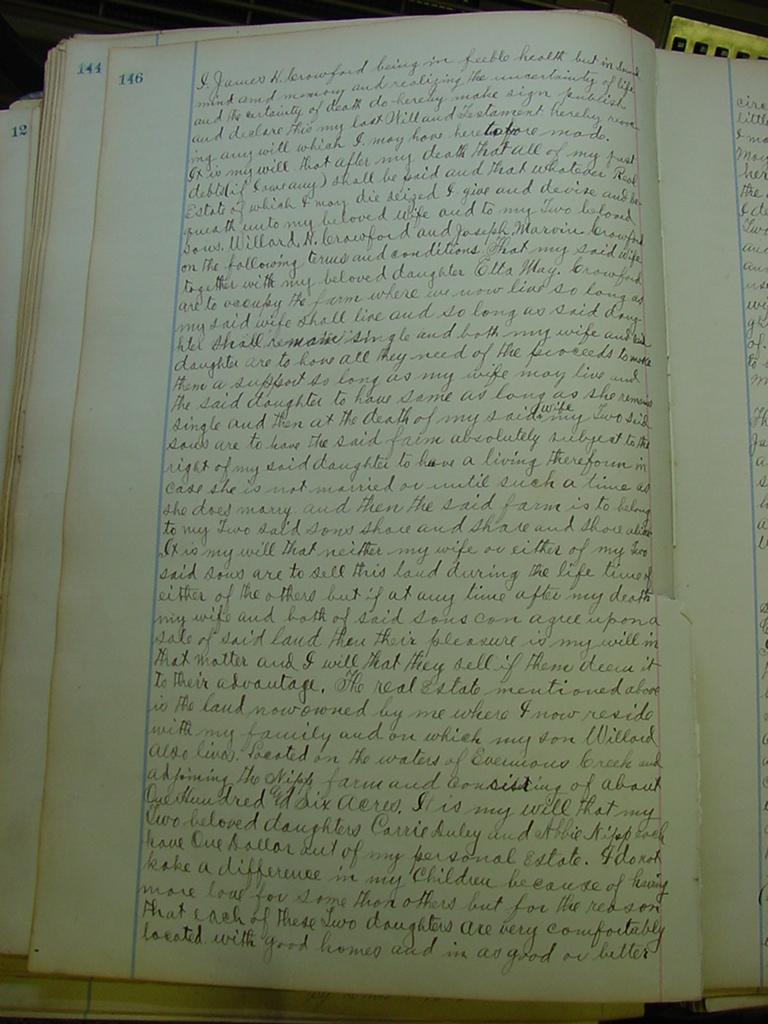 144
146
12
I. James H. Crowford being in feeble health but in sound
mind and memory and realizing the uncertainty of life
and the certainty of death do hereby make sign publish
and declare this my last Will and Testament hereby revok
ing any will which I may have heretofore made.
It is my will that after my death that all of my just
debts (if I owe any) shall be paid and that whatever Real
Estate of which I may die seized I give and devise and be
queath unto my beloved wife and to my Two beloved
sons. Willard. H. Crowford and Joseph. Marvin Crowford
on the following terms and conditions That my said wife
together with my beloved daughter Etta May. Crowford
are to occupy the farm where we now live so long as
my said wife shall live and so long as said daug-
hter shall remain single and both my wife and said
daughter are to have all they need of the proceeds to make
them a support so long as my wife may live and
the said daughter to have same as long as she remains
single and then at the death of my said wife my Two said
sons are to have the said farm absolutely subject to the
right of my said daughter to have a living thereform in
case she is not married or until such a time as
she does marry. and then the said farm is to belong
to my Two said sons share and share and share alike
It is my will that neither my wife or either of my Two
said sons are to sell this land during the life time of
either of the others but if at any time after my death
my wife and both of said sons can agree upon a
sale of said land then their pleasure is my will in
that matter and I will that they sell if them deem it
to their advantage. The real Estate mentioned above
is the land now owned by me where I now reside
with my family and on which my son Willard
also lives. Located on the waters of Creek and
adjoining the Nipp farm and consisting of about
One Hundred Six Acres. It is my will that my
Two beloved daughters Carrie Duley and Abbie Nipp each
have One Dollar out of my personal Estate. I do not
make a difference in my Children because of having
more love for some than others but for the reason
that each of these Two daughters are very comfortably
located with good homes and in as good or better